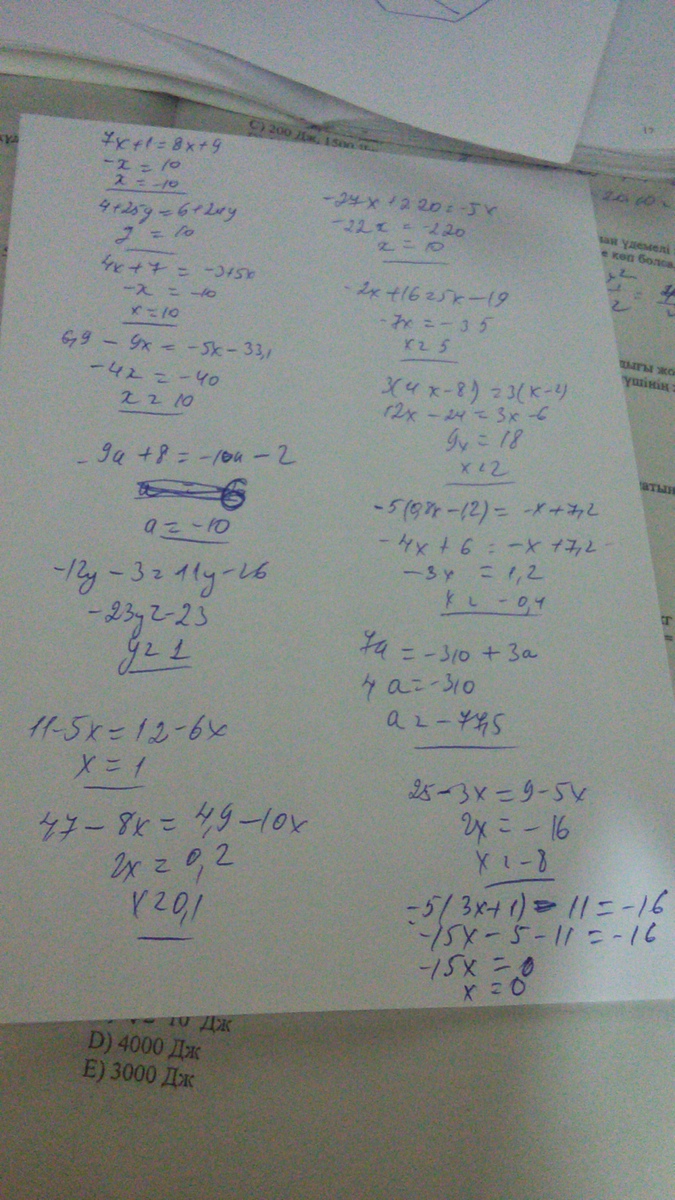 C) 200 Дж, 1500
17
7x+1=8x+9
-x = 10
x = -10
4+25y=6+24y
y = 10
4x+7 = -3+5x
-x = -10
x=10
6,9 - 9x = -5x-33,1
-4x = -40
x = 10
-9a+8=-10a-2
a = -10
-12y-3=11y-26
-23y=-23
y=1
11-5x=12-6x
x=1
4,7-8x=4,9-10x
2x=0,2
x=0,1
-27x+220=-5x
-22x=-220
x=10
-2x+16=5x-19
-7x=-35
x=5
3(4x-8)=3(x-2)
12x-24=3x-6
9x=18
x=2
-5(0,8x-1,2)=-x+7,2
-4x+6=-x+7,2
-3x=1,2
x=-0,4
7a=-310+3a
4a=-310
a=-77,5
25-3x=9-5x
2x=-16
x=-8
-5(3x+1)-11=-16
-15x-5-11=-16
-15x=0
x=0
D) 4000 Дж
E) 3000 Дж